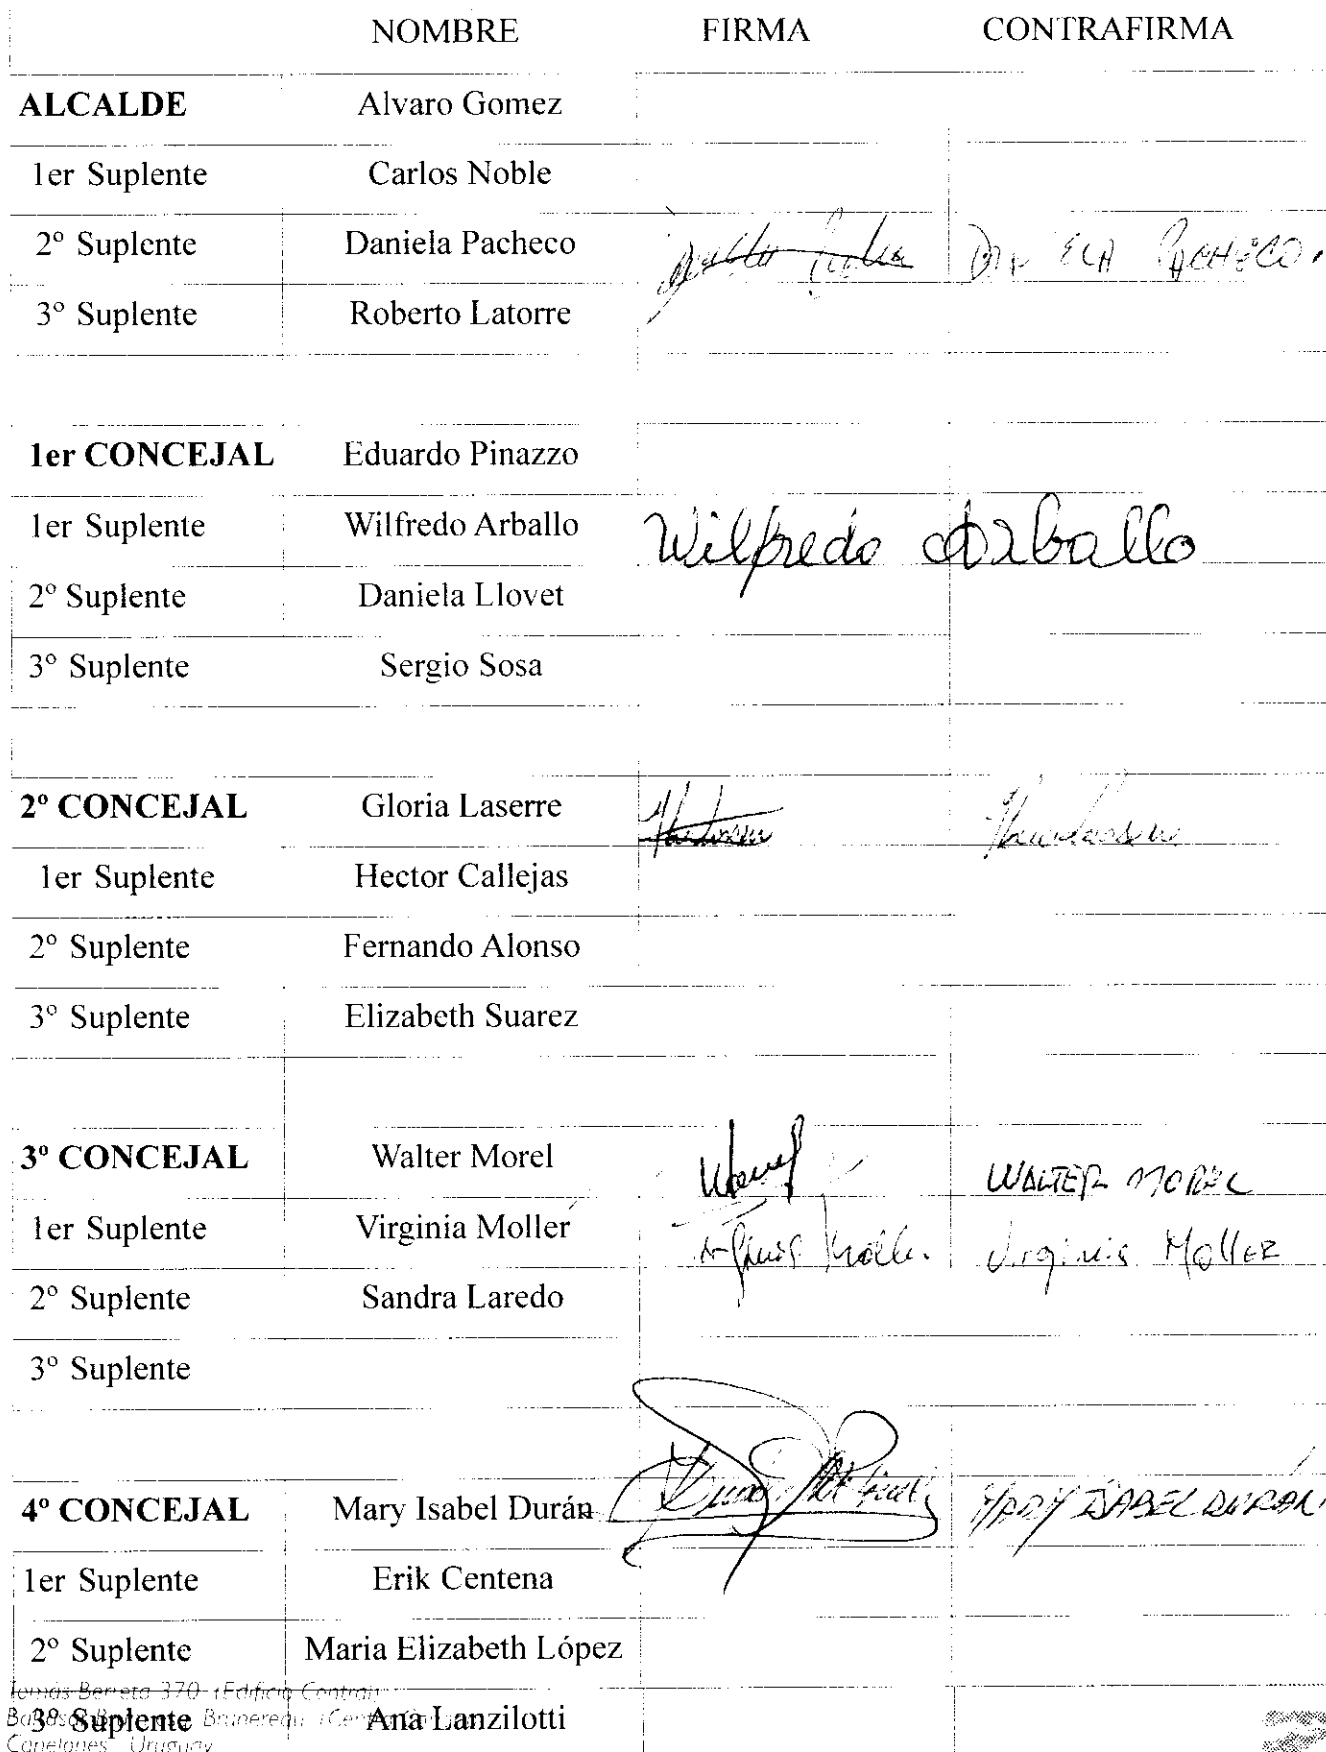 NOMBRE FIRMA CONTRAFIRMA
ALCALDE Alvaro Gomez
1er Suplente Carlos Noble
2º Suplente Daniela Pacheco PACHECO.
3º Suplente Roberto Latorre
1er CONCEJAL Eduardo Pinazzo
1er Suplente Wilfredo Arballo Wilfredo Arballo
2º Suplente Daniela Llovet
3º Suplente Sergio Sosa
2º CONCEJAL Gloria Laserre
1er Suplente Hector Callejas
2º Suplente Fernando Alonso
3º Suplente Elizabeth Suarez
3º CONCEJAL Walter Morel WALTER MOREL
1er Suplente Virginia Moller Virginia Moller
2º Suplente Sandra Laredo
3º Suplente
4º CONCEJAL Mary Isabel Durán MARY ISABEL DURAN
1er Suplente Erik Centena
2º Suplente Maria Elizabeth López
Tomás Berreta 370 (Edificio Central)
3º Suplente Ana Lanzilotti
Canelones Uruguay